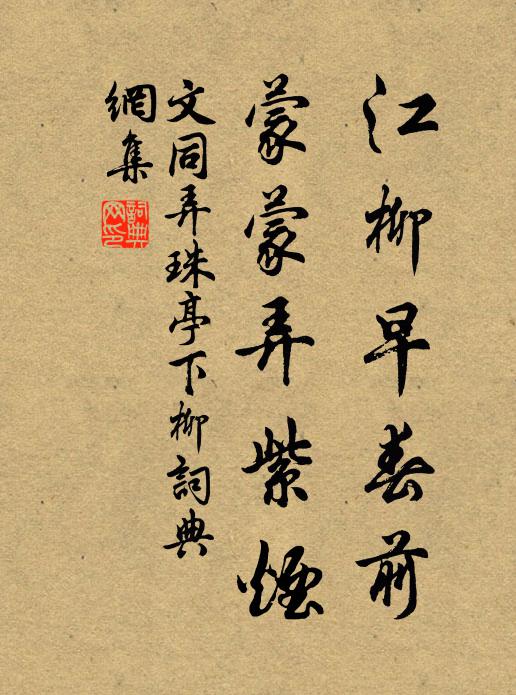 江柳早春前
蒙蒙弄紫煙
文同弄珠亭下柳詞典
網集
詞典網印